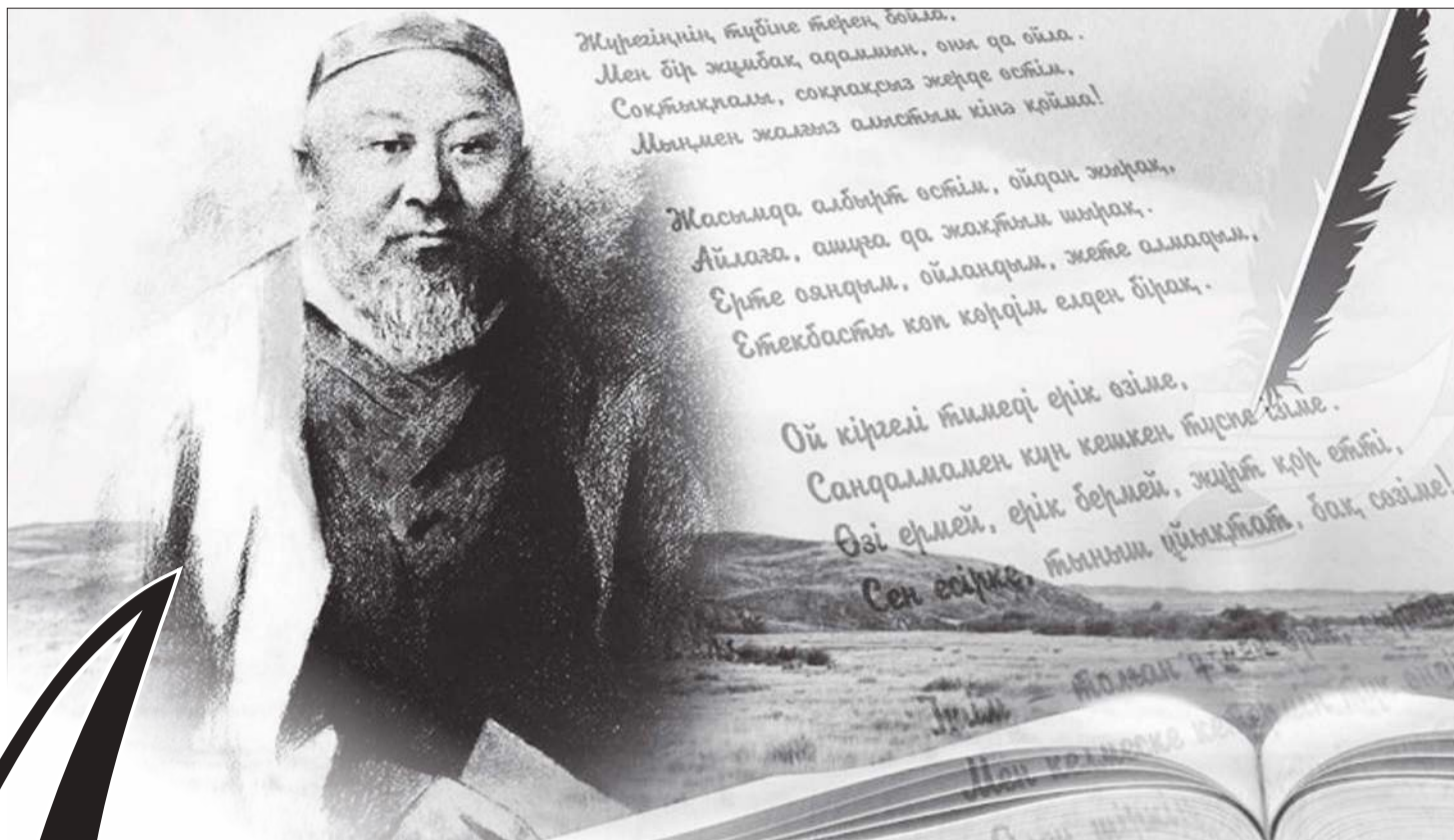 Жүрегіңнің түбіне терең бойла,
Мен бір жұмбақ адаммын, оны да ойла.
Соқтықпалы, соқпақсыз жерде өстім,
Мыңмен жалғыз алыстым кінә қойма!
Жасымда албырт өстім, ойдан жырақ,
Айлаға, ашуға да жақтым шырақ.
Ерте ояндым, ойландым, жете алмадым,
Етекбасты көп көрдім елден бірақ.
Ой кіргелі тимеді ерік өзіме,
Сандалмамен күн кешкен түспе ізіме.
Өзі ермей, ерік бермей, жұрт қор етті,
Сен есірке, тыныш ұйықтат, бақ сөзіме!
Ішім толған
Мен келмеске